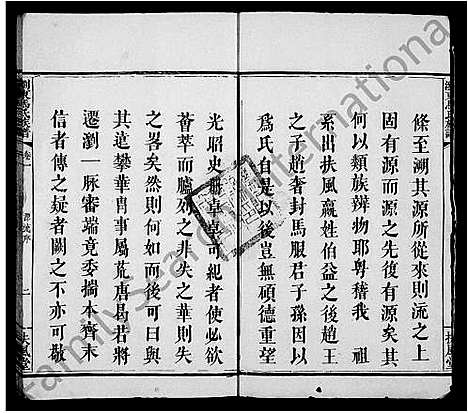 條至溯其源所從來則流之上
固有源而源之先復有源矣其
何以類族辨物耶粵稽我 祖
系出扶風嬴姓伯益之後趙王
之子趙奢封馬服君子孫因以
為氏自是以後豈無碩德重望
光昭史冊卓卓可紀者使必欲
薈萃而臚列之非失之華則失
之畧矣然則何如而後可曰與
其遠攀華冑事屬荒唐曷若將
遷瀏一脈審端竟委揣本齊末
信者傳之疑者闕之不亦可歟
卷一
二
扶風堂
FamilySearch International